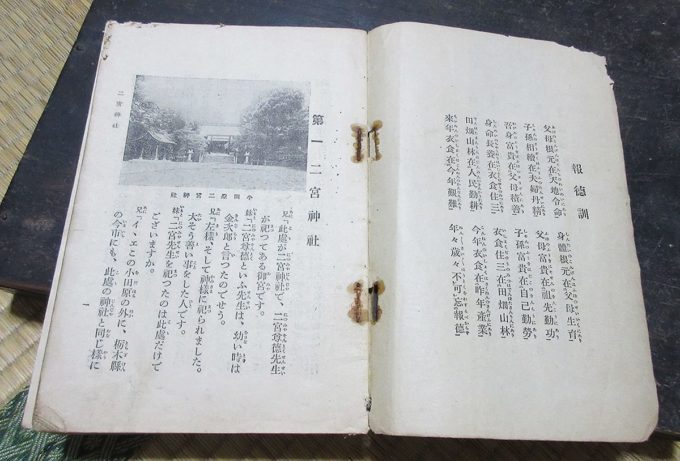 報徳訓
父母根元在天地令命 身體根元在父母生育
子孫相續在夫婦丹精 父母富貴在祖先勤功
吾身富貴在父母積善 子孫富貴在自己勤勞
身命長養在衣食住三 衣食住三在田畑山林
田畑山林在人民勤耕 今年衣食在昨年產業
來年衣食在今年艱難 年々歲々不可忘報德
第一 二宮神社
小田原二宮神社
兄「此處が二宮神社で、二宮尊德先生
が祀つてある御宮です。
妹「二宮尊德といふ先生は、幼い時は
金次郎と言つたのでせう。
兄「左樣、そして神樣に祀られました。
大そう善い事をした人です。
妹「二宮先生を祀つたのは此處だけで
ございますか。
兄「イ、エこの小田原の外に、栃木縣
の今市にも、此處の神社と同じ樣に
二宮神社
一